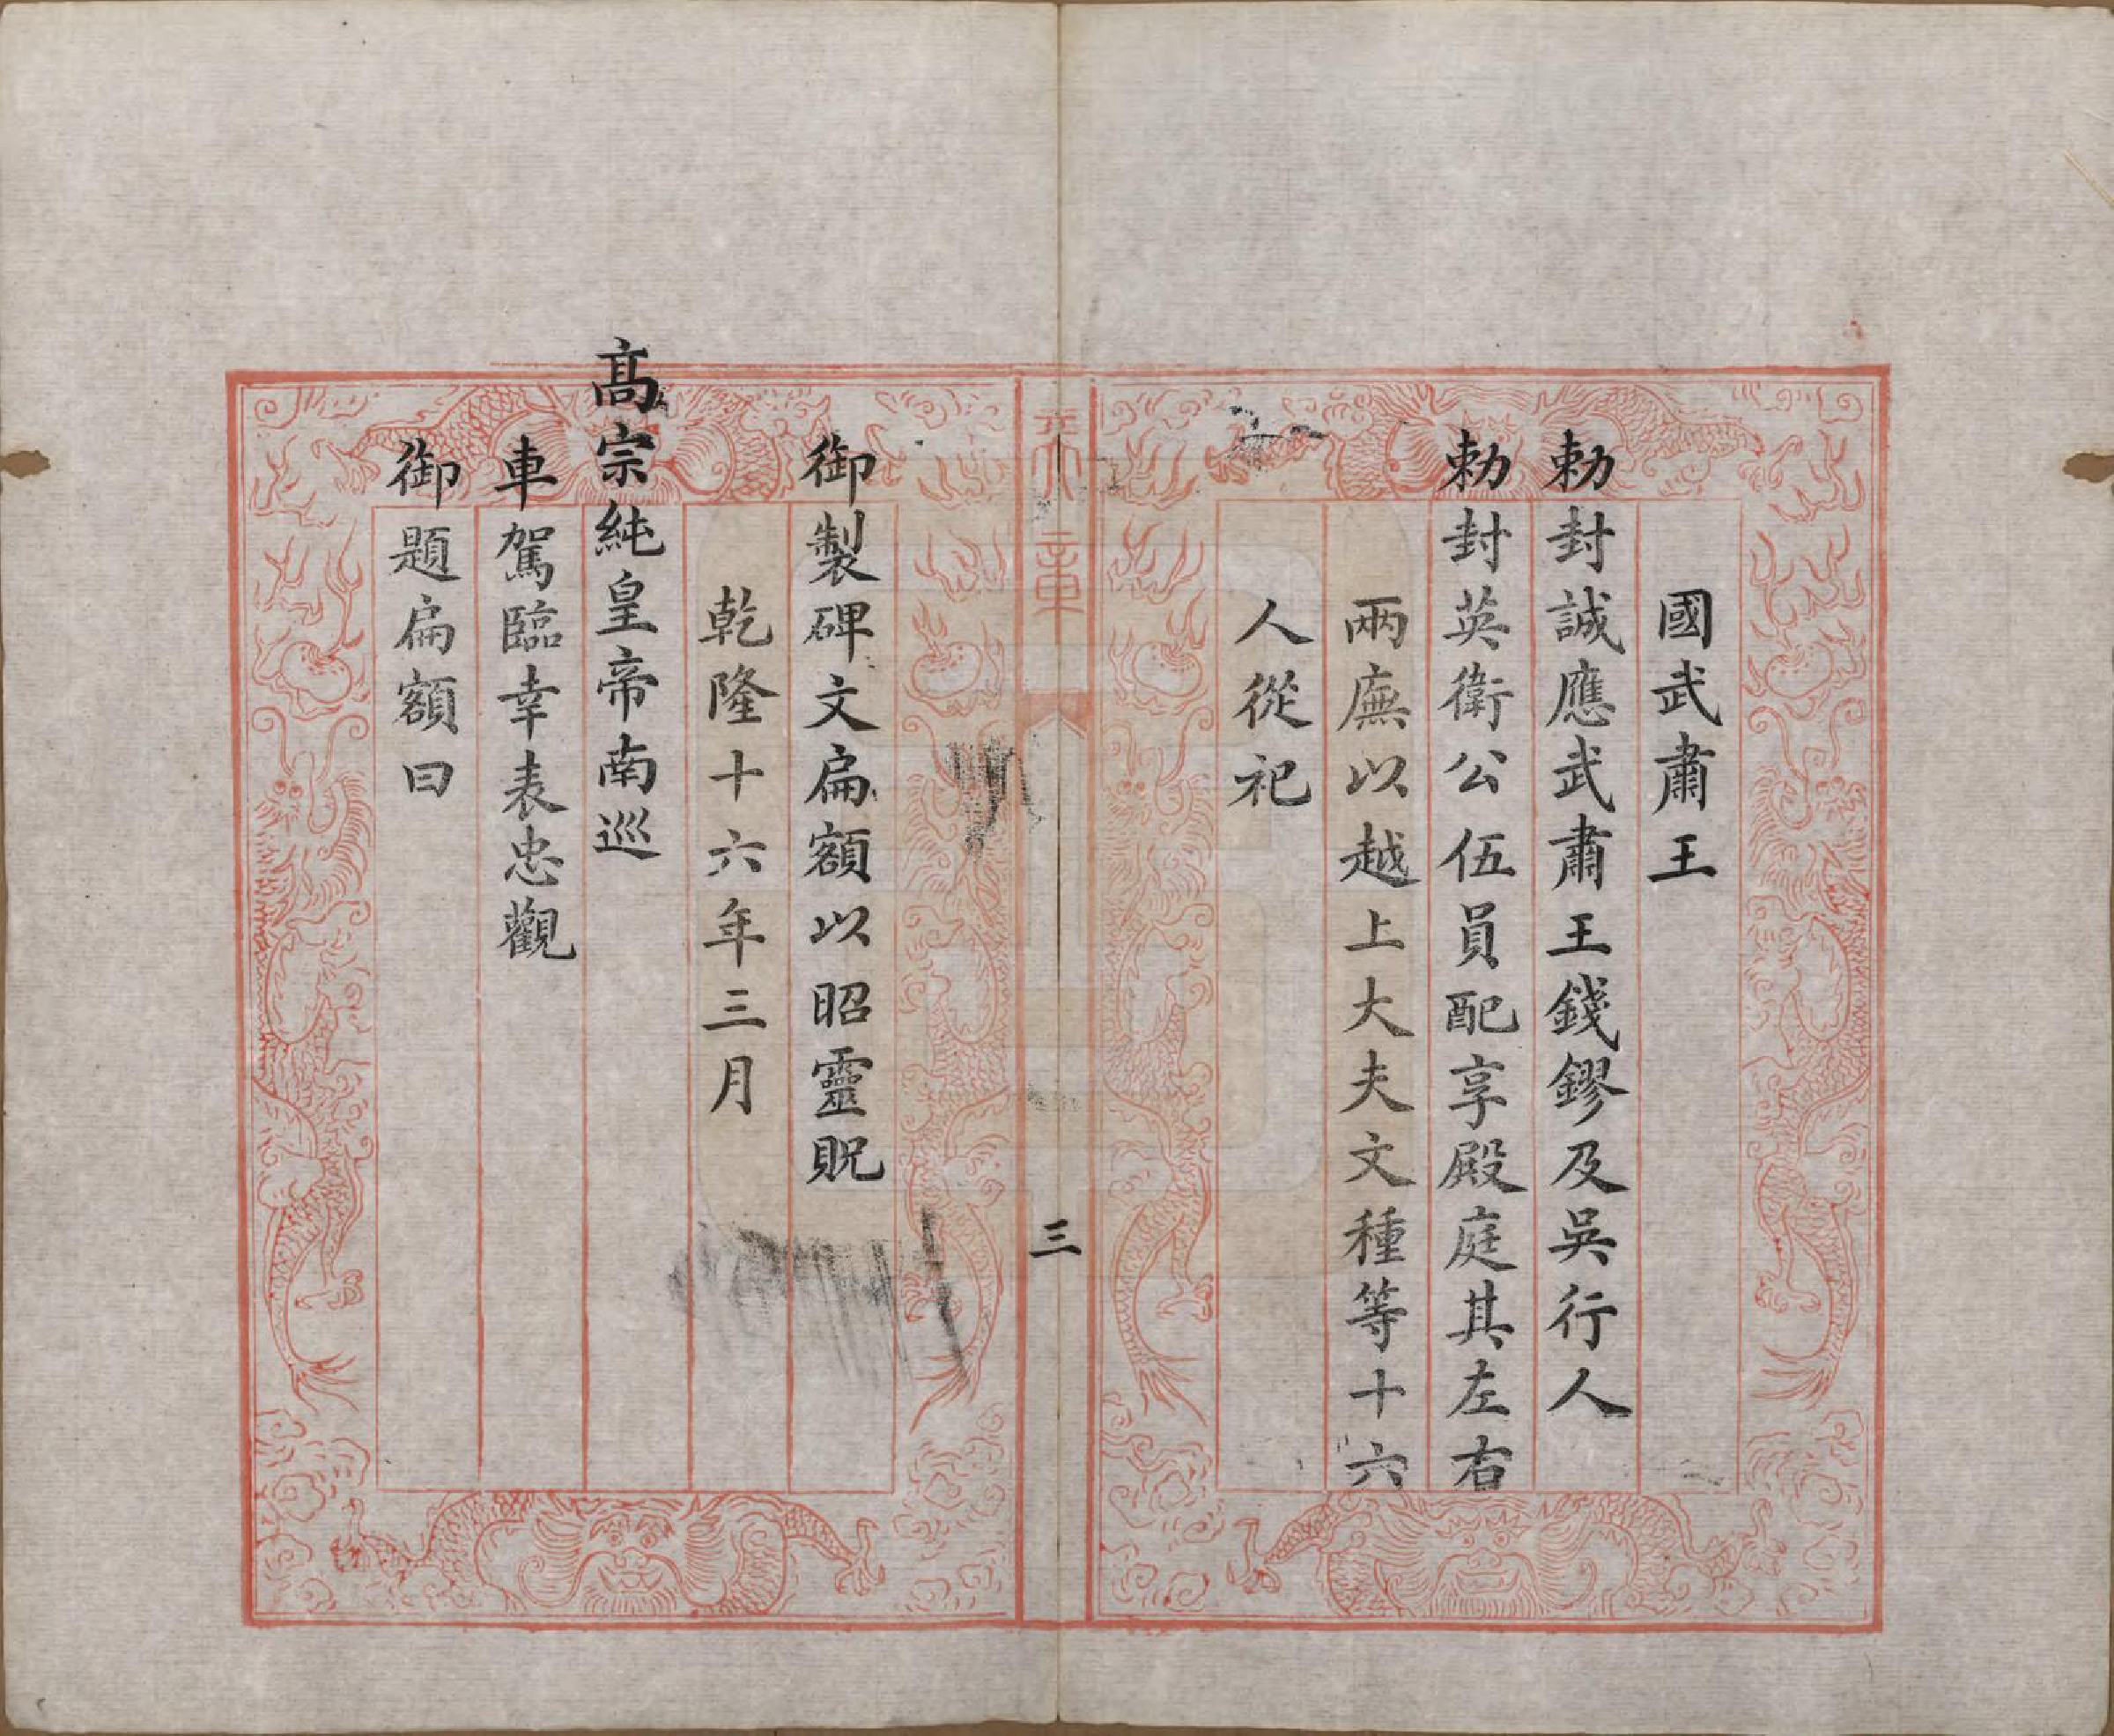 國武肅王
勅封誠應武肅王錢鏐及吳行人
勅封英衛公伍員配享殿庭其左右
兩廡以越上大夫文種等十六
人從祀
三
御製碑文扁額以昭靈貺
乾隆十六年三月
高宗純皇帝南巡
車駕臨幸表忠觀
御題扁額曰